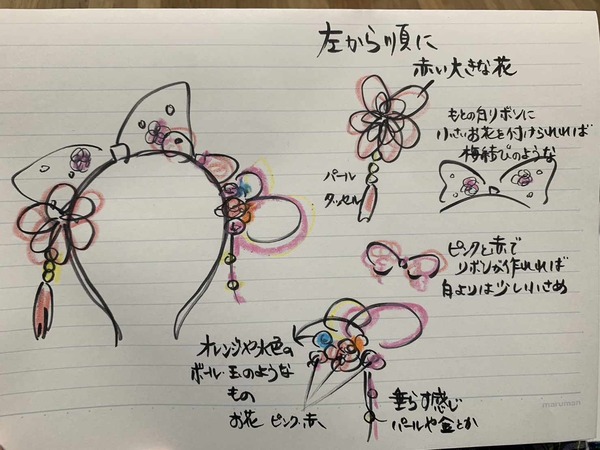 左から順に
赤い大きな花
もとの白リボンに
小さいお花を付けられれば
梅結びのような
パール
タッセル
ピンクと赤で
リボンが作れれば
白よりは少し小さめ
オレンジや水色の
ボール・玉のような
もの
お花 ピンク・赤
垂らす感じ
パールや金とか
maruman